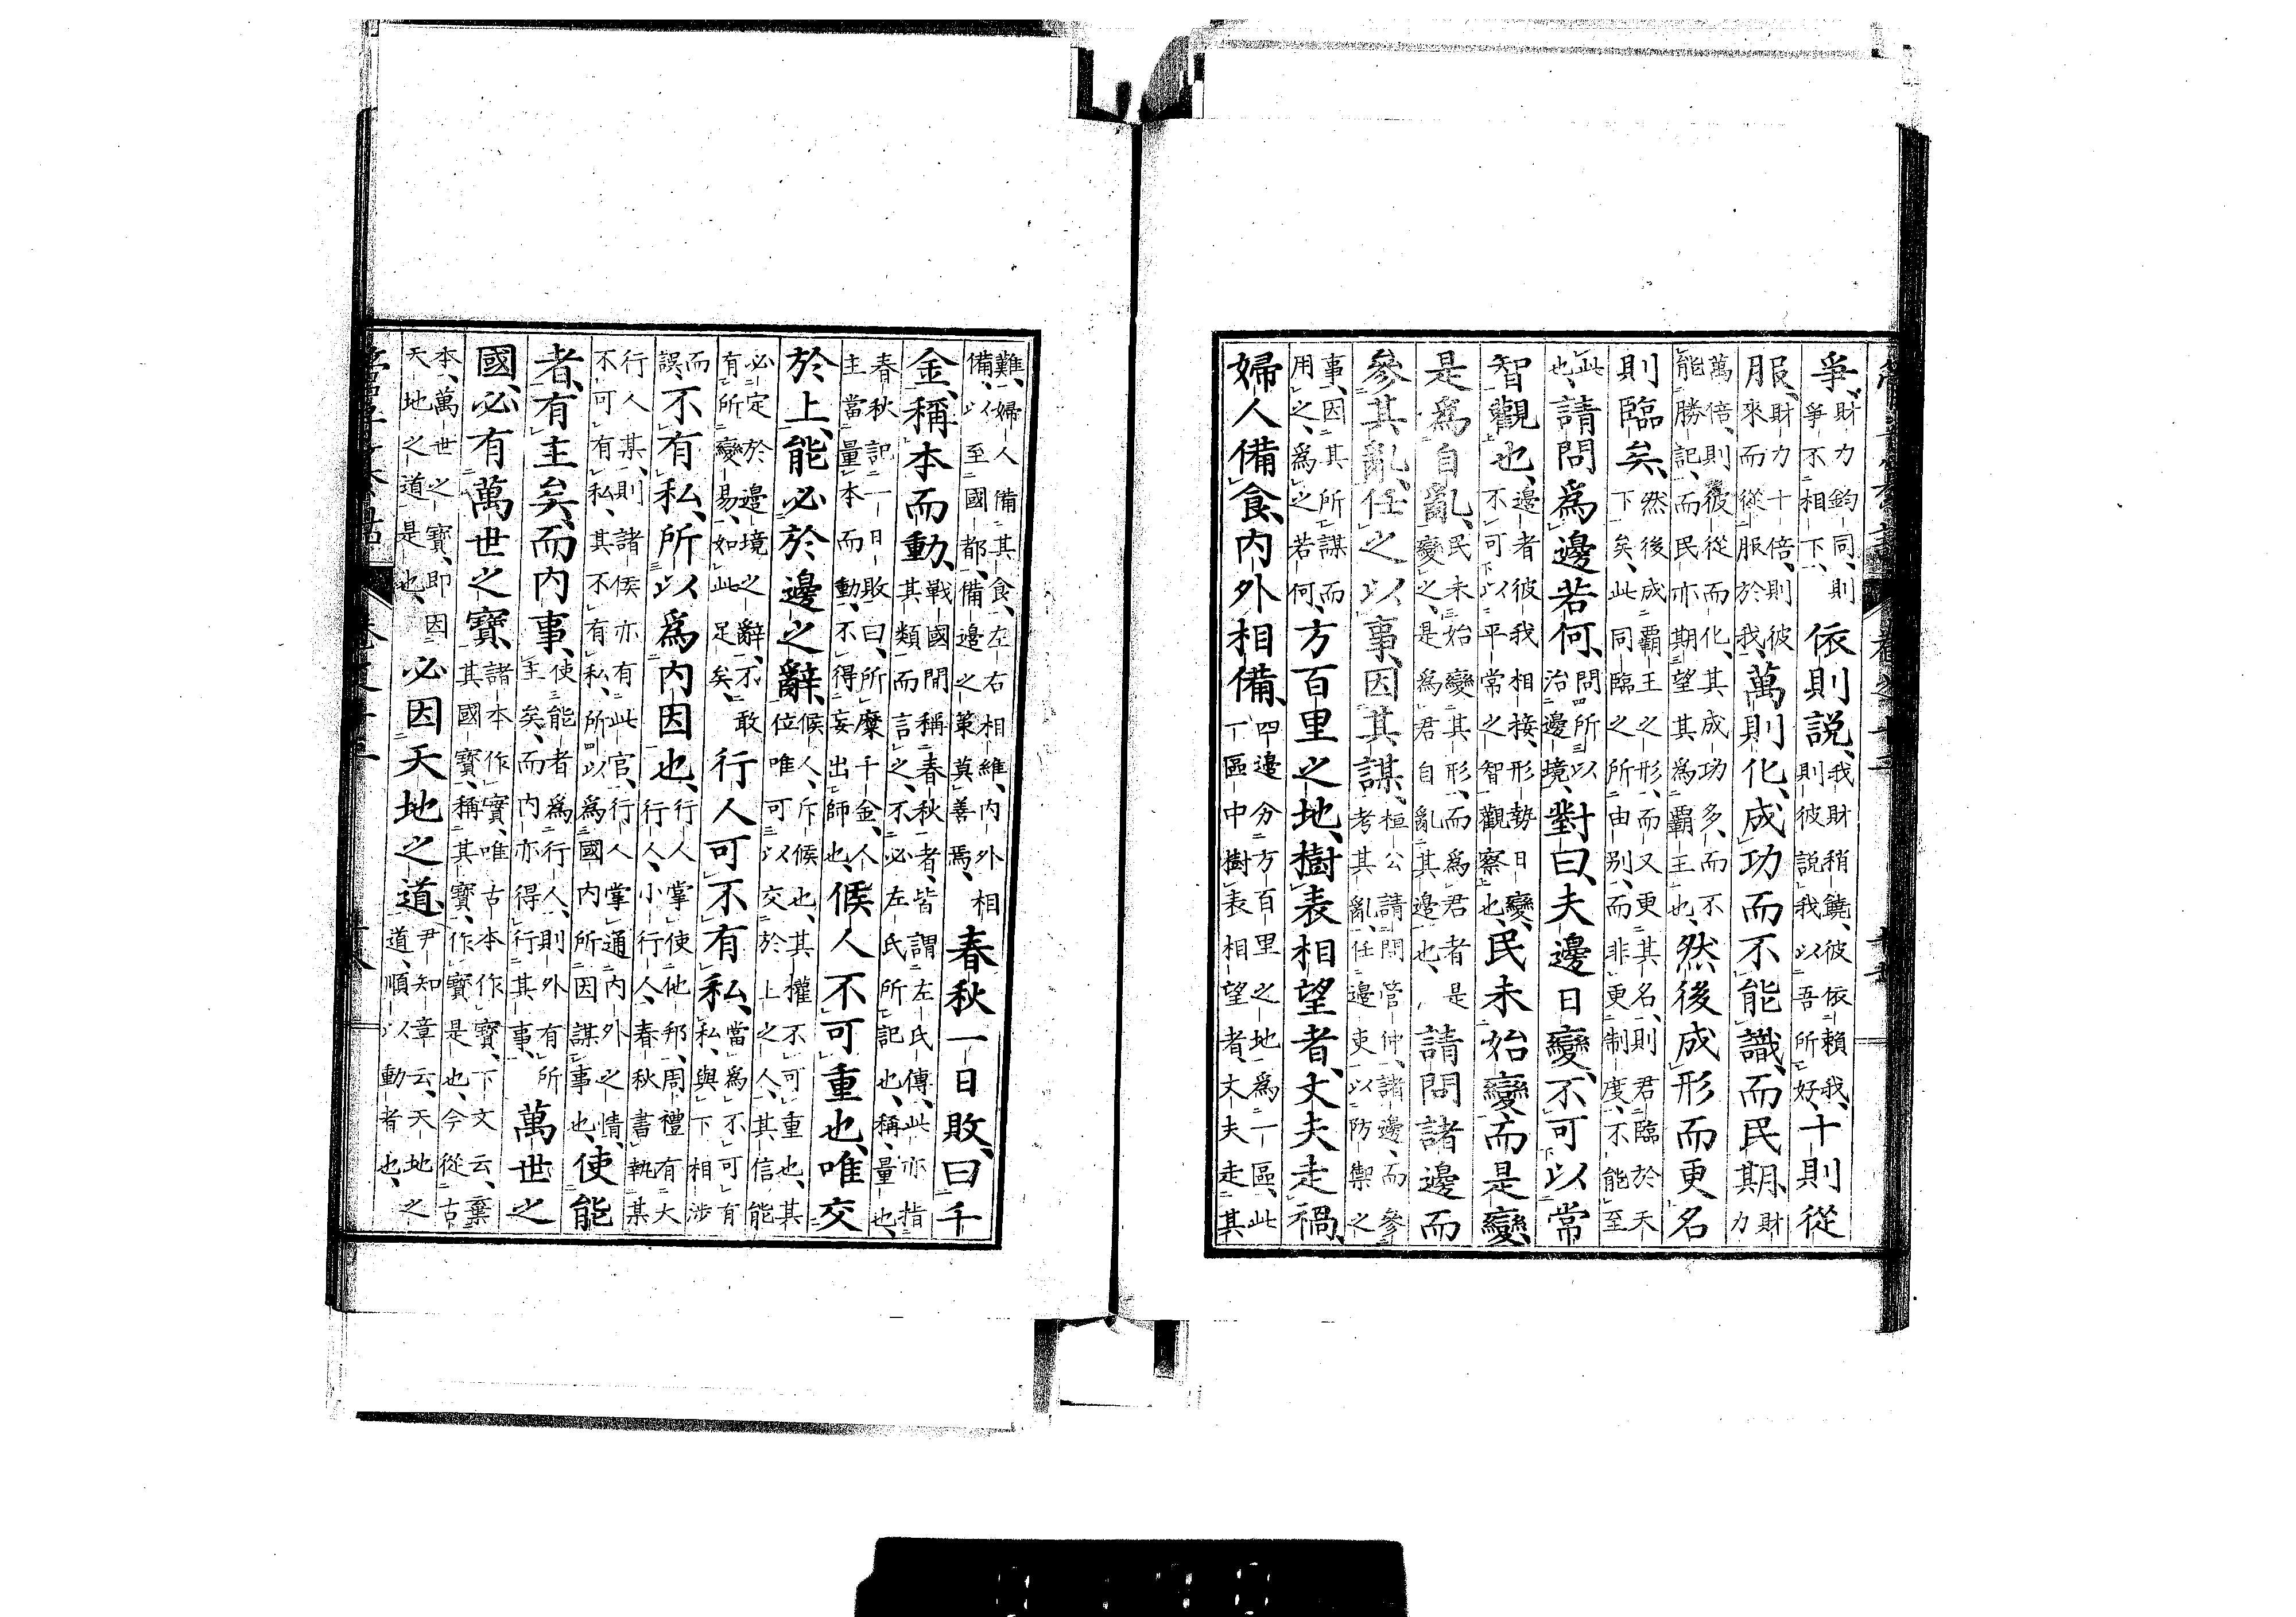 爭、財力鈞同、則爭不相下、依則說、我財稍饒、彼依賴我、則彼說我以吾所好、十則從
服、財力十倍、則彼服來而從服於我、萬則化、成功而不能識、而民期、財力
萬倍、則彼從而化、其成功多、而不能勝記、而民亦期望其爲霸王也、然後成形而更名
則臨矣、然後成霸王之形、而又更其名、則君臨於天下矣、此同臨之所由別、而非更制度、不能至
此也、請問爲邊若何、問所以治邊境、對曰、夫邊日變、不可以常
智觀也、邊者彼我相接、形勢日變、不可以平常之智觀察也、民未始變、而是變、
是爲自亂、民未始變其形、而爲君者是變之、是爲君自亂其邊也、請問諸邊而
參其亂、任之以事、因其謀、桓公請問管仲、諸邊而參考其亂、任邊吏以防禦之
事、因其所謀而用之、爲之若何、方百里之地、樹表相望者、丈夫走禍、
婦人備食、內外相備、四邊分方百里之地爲一區、此一區中樹表相望者、丈夫走其
難、婦人備其食、左右相維、內外相備、以至國都、備邊之策莫善焉、春秋一日敗、曰千
金、稱本而動、戰國間稱春秋者、皆謂左氏傳、此亦指其類而言之、不必左氏所記也、稱、量也、
春秋記一日敗曰、所糜千金、人主當量本而動、不得妄出師也、候人不可重也、唯交
於上、能必於邊之辭、候人、斥候也、其權不可重也、其位唯可以交於上之人、其信能
必定於邊境之辭、不敢有所變易、如此足矣、行人可不有私、當爲不可有私、與下相涉
而誤、不有私、所以爲內因也、行人掌使他邦、周禮有大行人、小行人、春秋書執某
行人某、則諸侯亦有此官、行人掌通內外之情、不可有私、其不有私、所以爲國內所因謀事也、使能
者、有主矣、而內事、使能者爲行人、則外有所主矣、而內亦得行其事、萬世之
國、必有萬世之寶、諸本作實、唯古本作寶、下文云、棄其國寶、稱其寶、作寶是也、今從古
本、萬世之寶、即因天地之道是也、必因天地之道、尹知章云、天地之道、順以動者也、